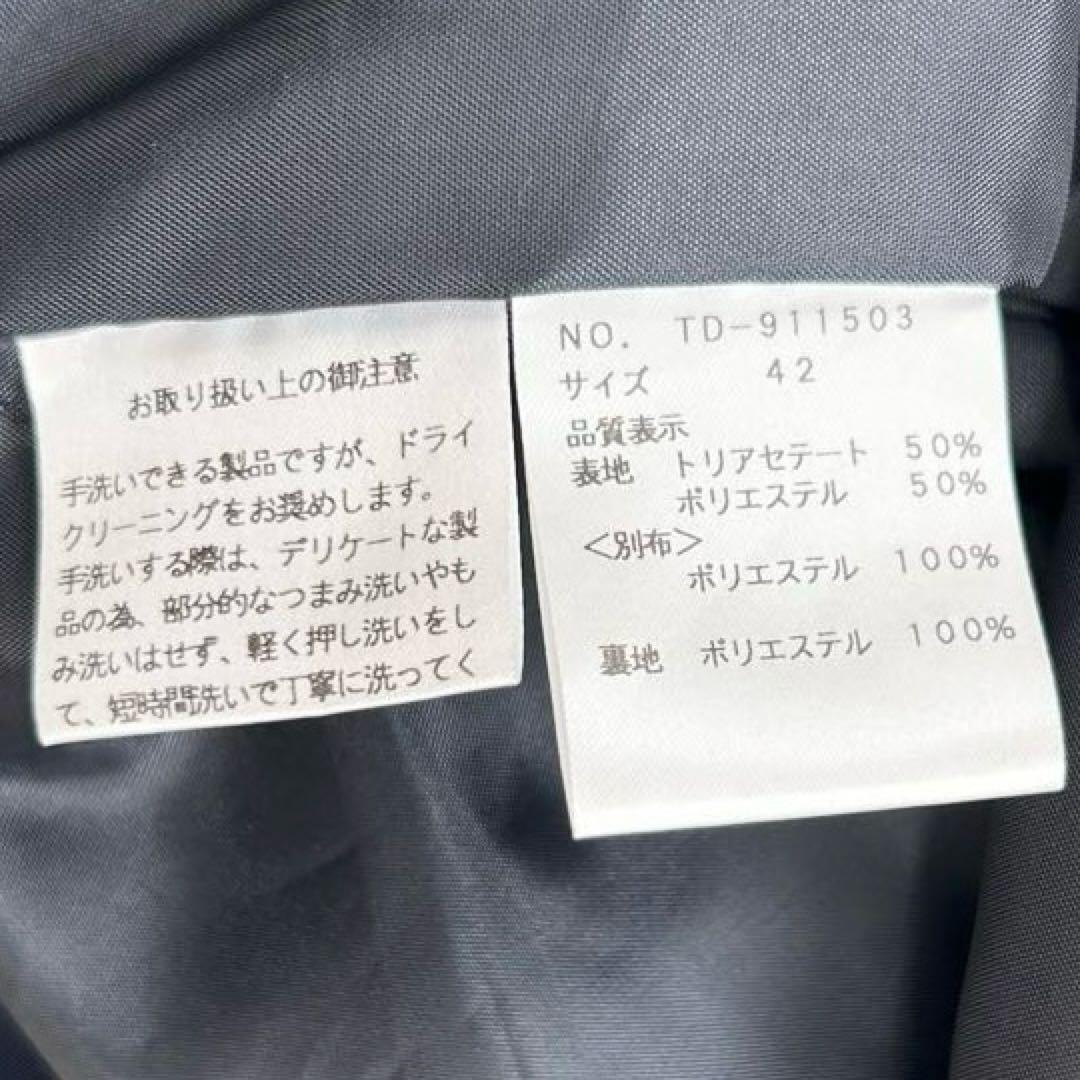 お取り扱い上の御注意
手洗いできる製品ですが、ドライ
クリーニングをお奨めします。
手洗いする際は、デリケートな製
品の為、部分的なつまみ洗いやも
み洗いはせず、軽く押し洗いをし
て、短時間洗いで丁寧に洗ってく
NO. TD-911503
サイズ 42
品質表示
表地 トリアセテート 50%
ポリエステル 50%
<別布>
ポリエステル 100%
裏地 ポリエステル 100%